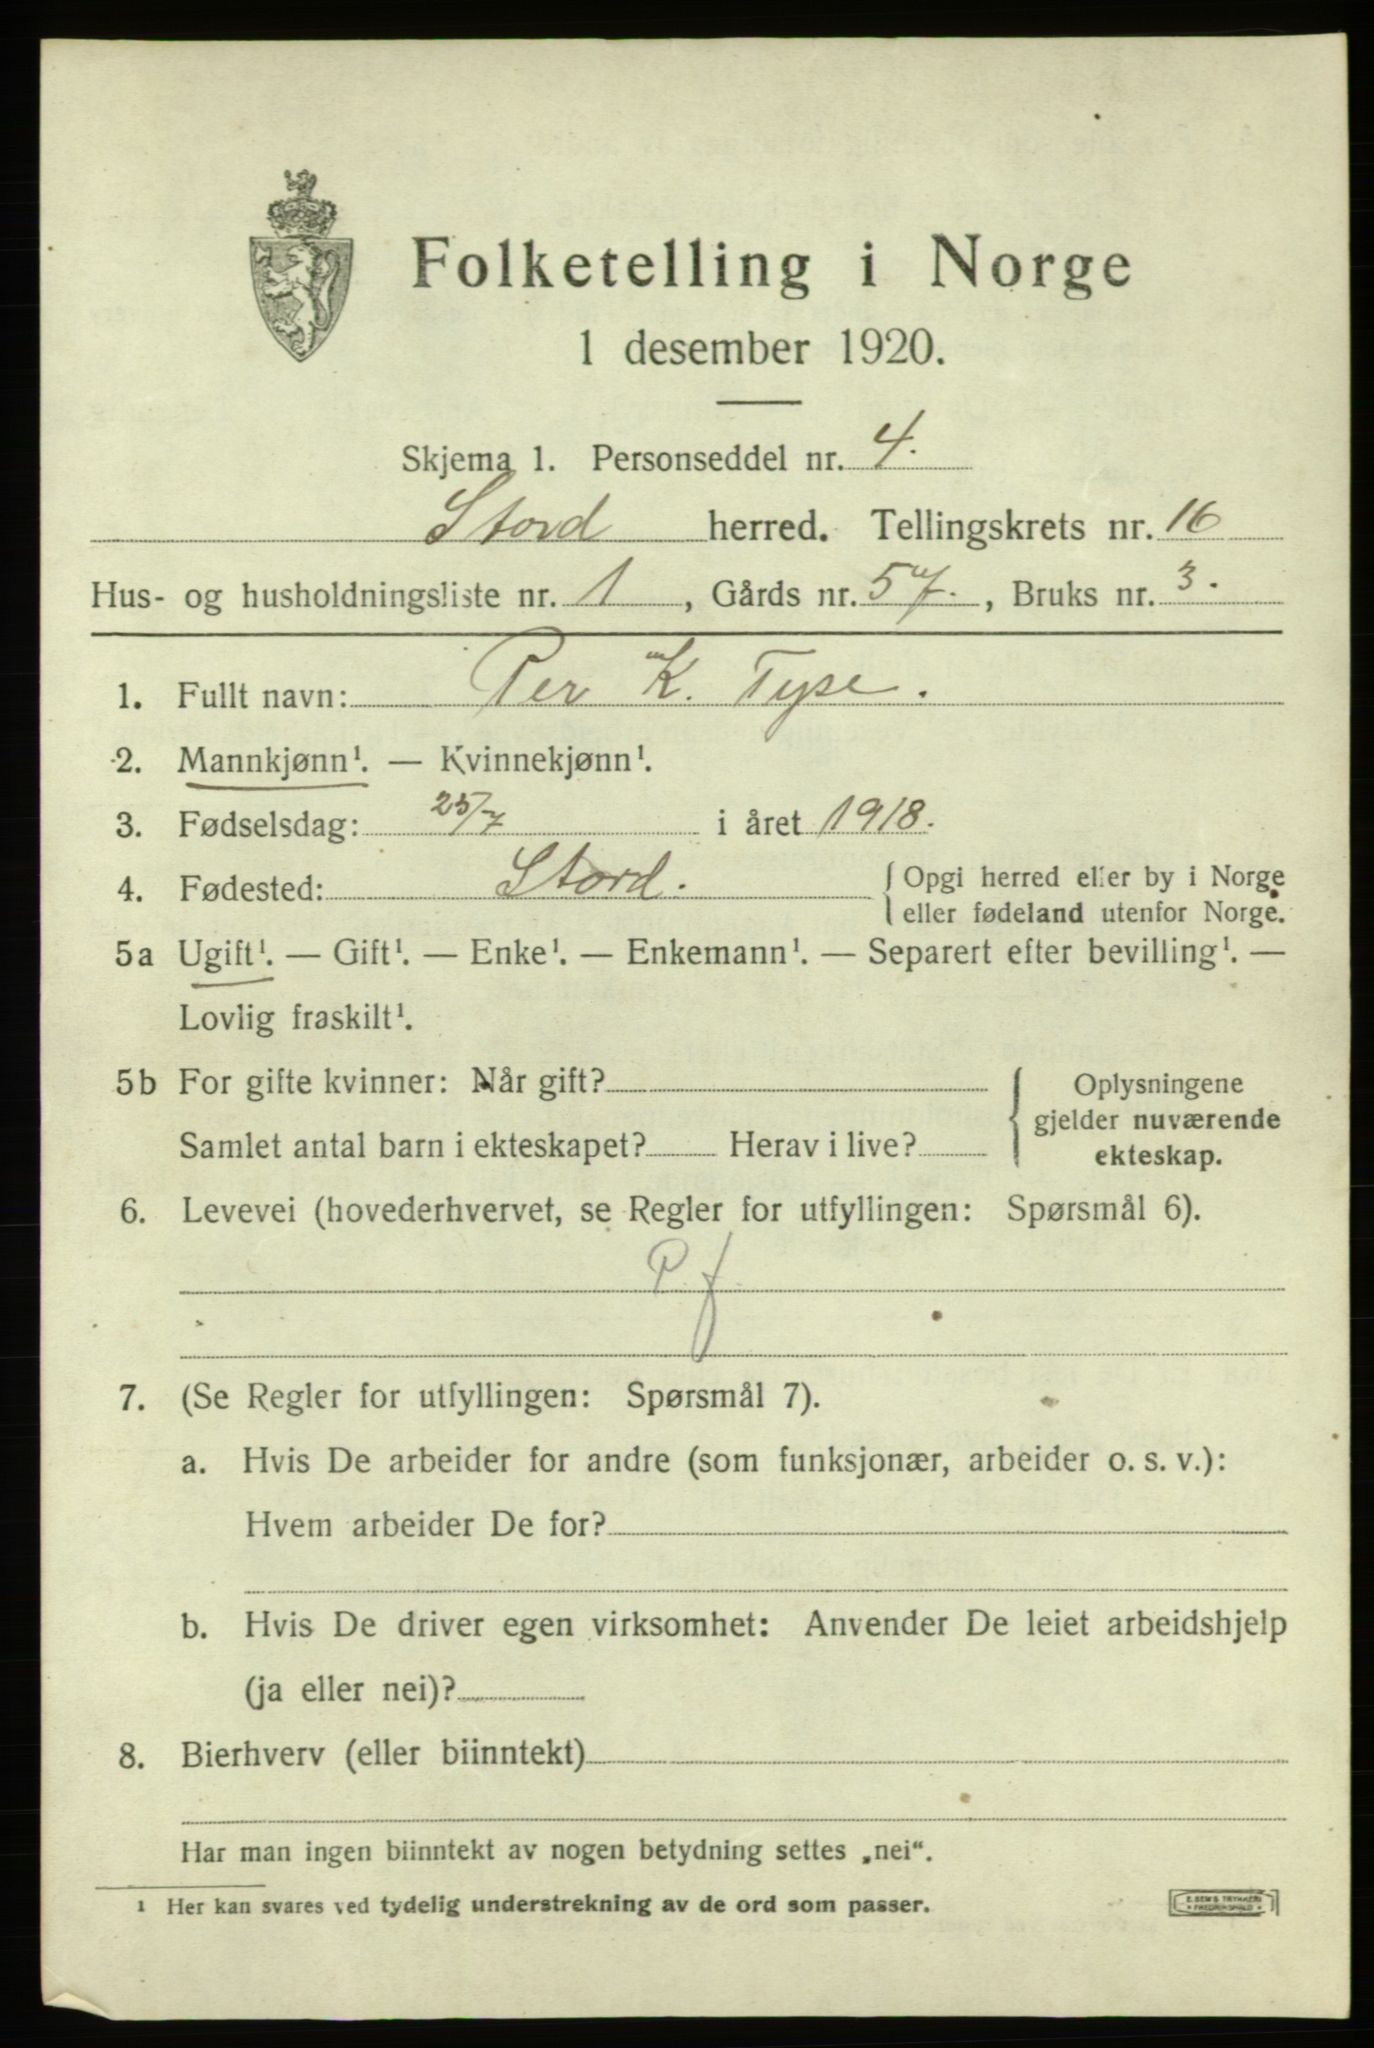 Folketelling i Norge
1 desember 1920.
Skjema 1. Personseddel nr. 4.
Stord herred. Tellingskrets nr. 16
Hus- og husholdningsliste nr. 1, Gårds nr. 57., Bruks nr. 3.
1. Fullt navn: Per K. Tyse.
2. Mannkjønn¹. — Kvinnekjønn¹.
3. Fødselsdag: 25/7 i året 1918.
4. Fødested: Stord. { Opgi herred eller by i Norge
eller fødeland utenfor Norge.
5a Ugift¹. — Gift¹. — Enke¹. — Enkemann¹. — Separert efter bevilling¹. —
Lovlig fraskilt¹.
5b For gifte kvinner: Når gift?
Samlet antal barn i ekteskapet? Herav i live?
{ Oplysningene
gjelder nuværende
ekteskap.
6. Levevei (hovederhvervet, se Regler for utfyllingen: Spørsmål 6).
P. f
7. (Se Regler for utfyllingen: Spørsmål 7).
a. Hvis De arbeider for andre (som funksjonær, arbeider o. s. v.):
Hvem arbeider De for?
b. Hvis De driver egen virksomhet: Anvender De leiet arbeidshjelp
(ja eller nei)?
8. Bierhverv (eller biinntekt)
Har man ingen biinntekt av nogen betydning settes „nei“.
¹ Her kan svares ved tydelig understrekning av de ord som passer.
E. SEMS TRYKKERI
FREDRIKSHALD